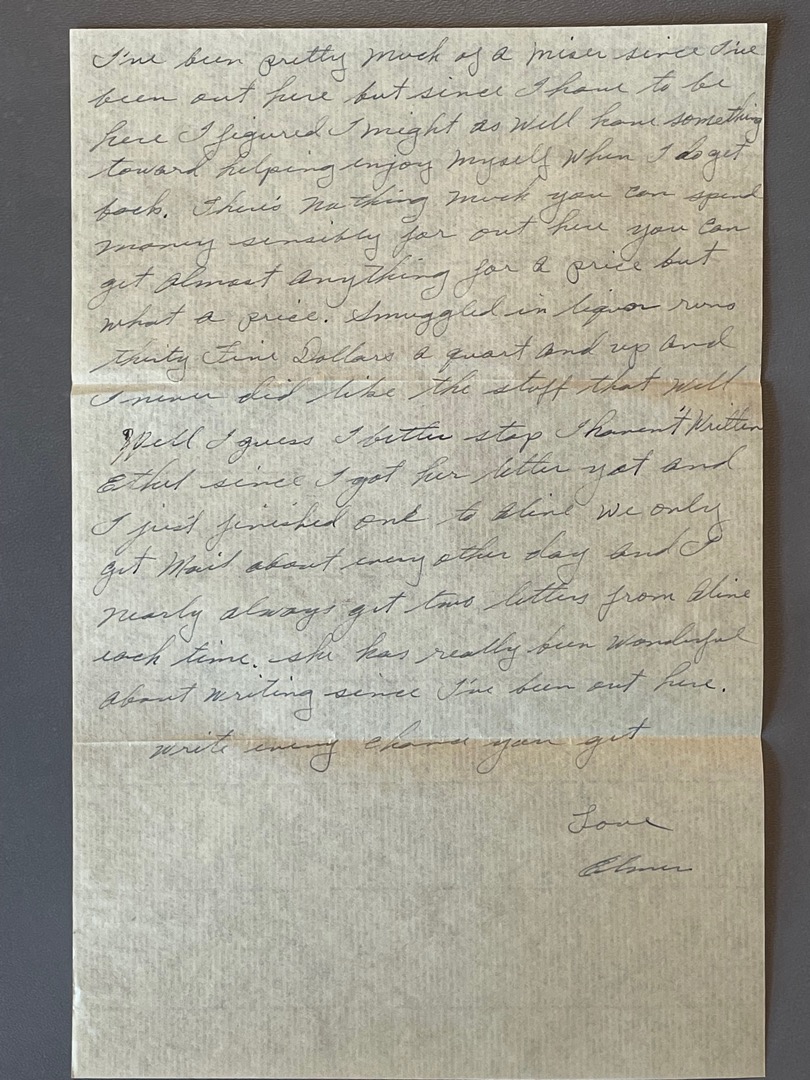 I've been pretty much of a miser since I've
been out here but since I have to be
here I figured I might as well have something
toward helping enjoy myself when I do get
back. There's nothing much you can spend
money sensibly for out here you can
get almost anything for a price but
what a price. Smuggled in liquor runs
thirty Five Dollars a quart and up and
I never did like the stuff that well
Well I guess I better stop I haven't Written
Ethel since I got her letter yet and
I just finished one to Aline We only
get Mail about every other day and I
nearly always get two letters from Aline
each time. She has really been wonderful
about writing since I've been out here.
Write every chance you get
Love
Elmer